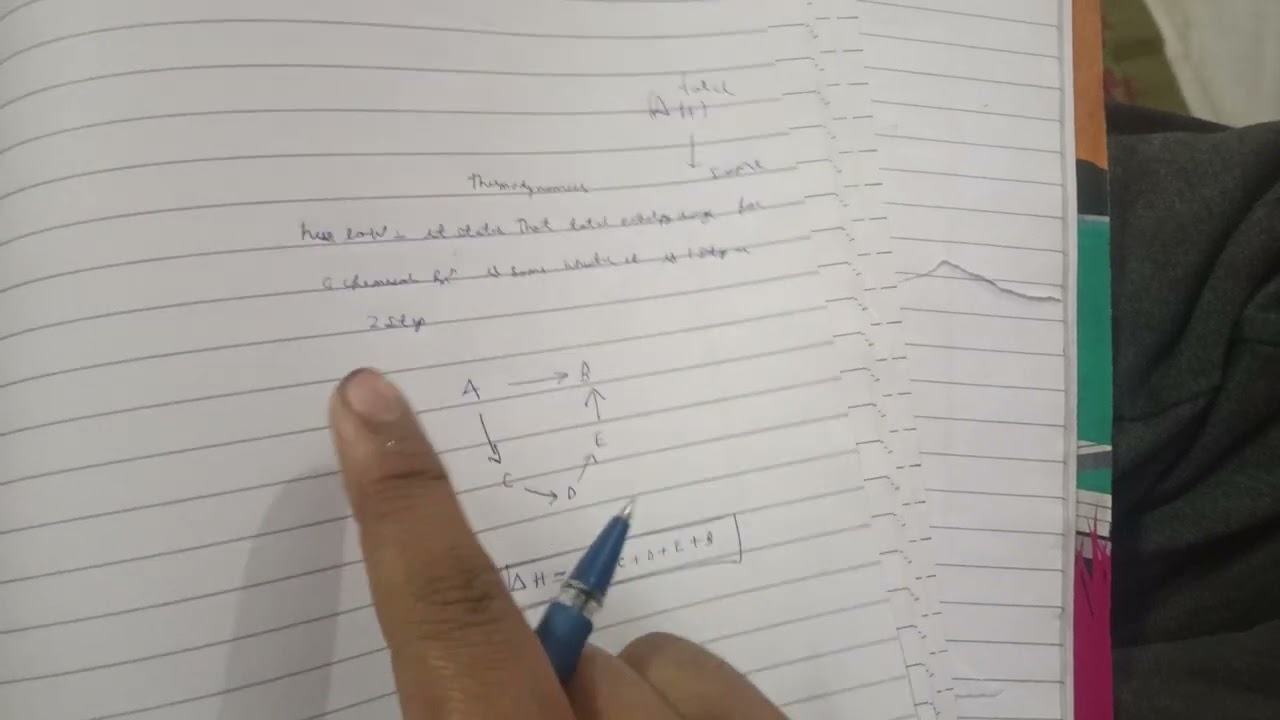 total
(Δ H)
same
Thermodynamics
hess law - it states that total enthalpy change for
a chemical Rxn is same whether it is 1 step or
2 step
A → B
E
C → D
ΔH = C + D + E + B